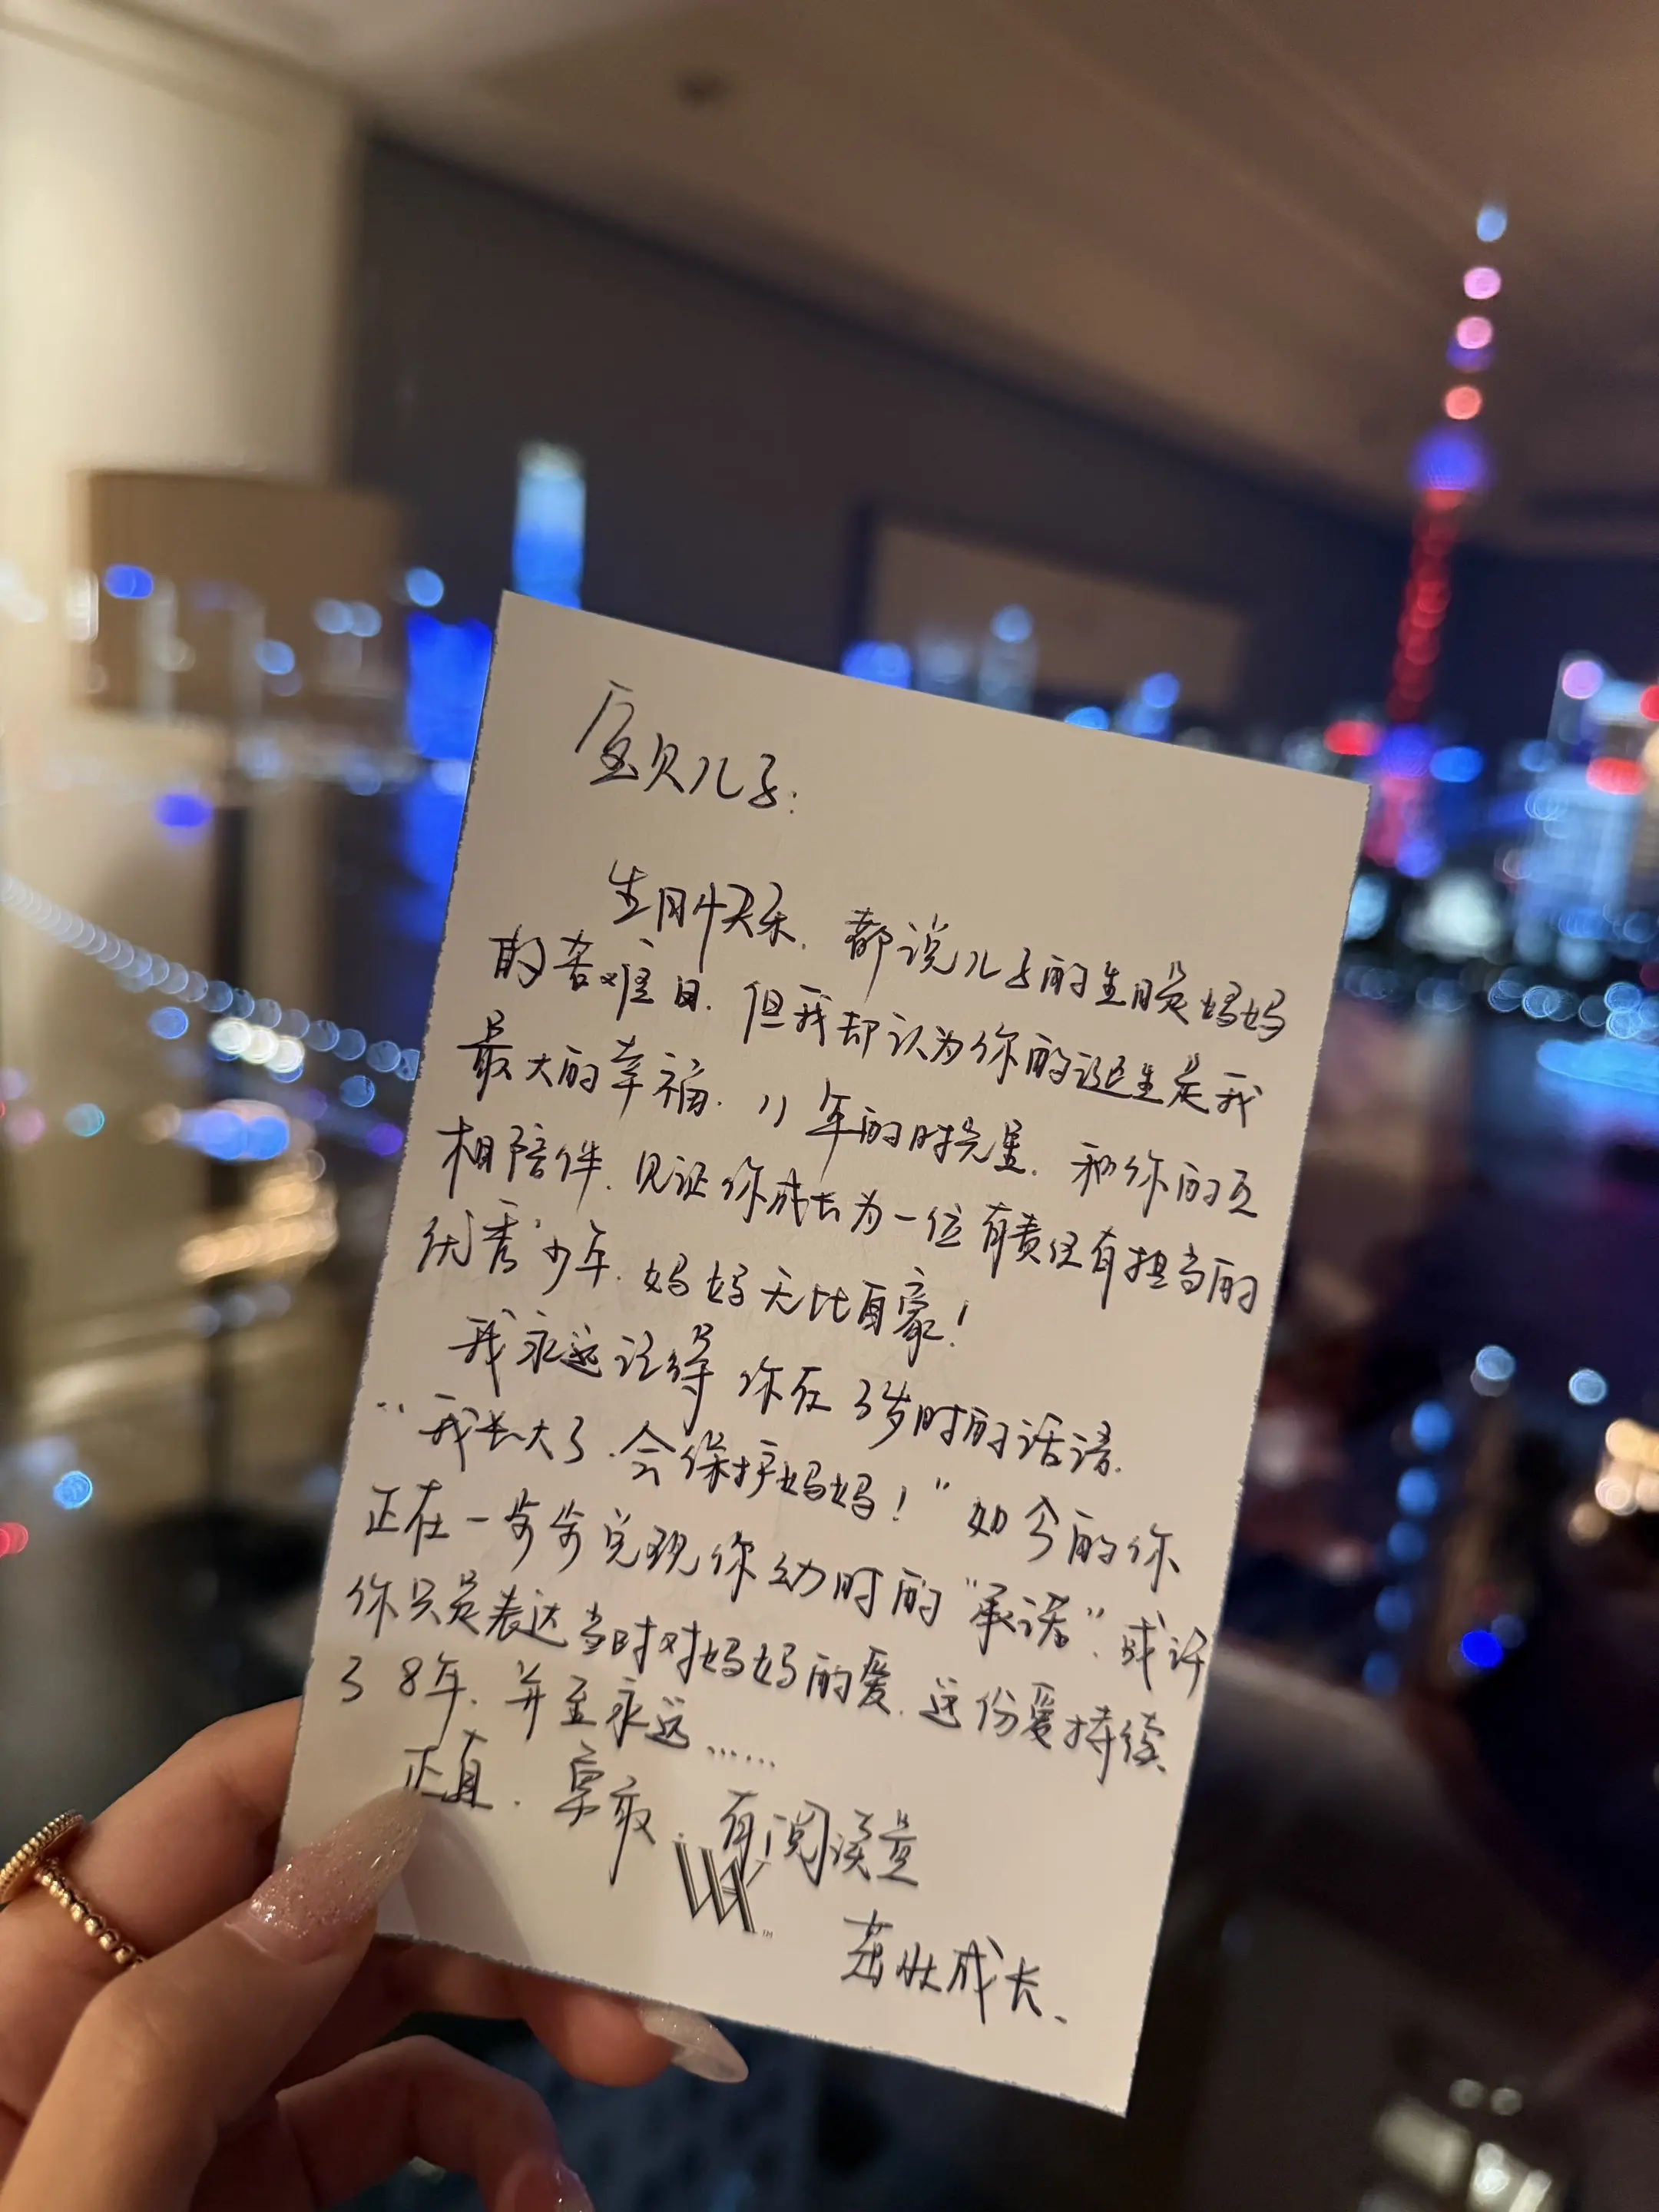 宝贝儿子:
生日快乐. 都说儿子的生日是妈妈
的苦难日. 但我却认为你的诞生是我
最大的幸福. 11年的时光里. 和你的互
相陪伴. 见证你成长为一位有责任有担当的
优秀少年. 妈妈无比自豪!
我永远记得 你在3岁时的话语.
"我长大了.会保护妈妈!" 如今的你
正在一步步兑现你幼时的"承诺". 或许
你只是表达当时对妈妈的爱. 这份爱持续
了8年. 并至永远......
正直. 勇敢. 有阅读量
W TM
茁壮成长.